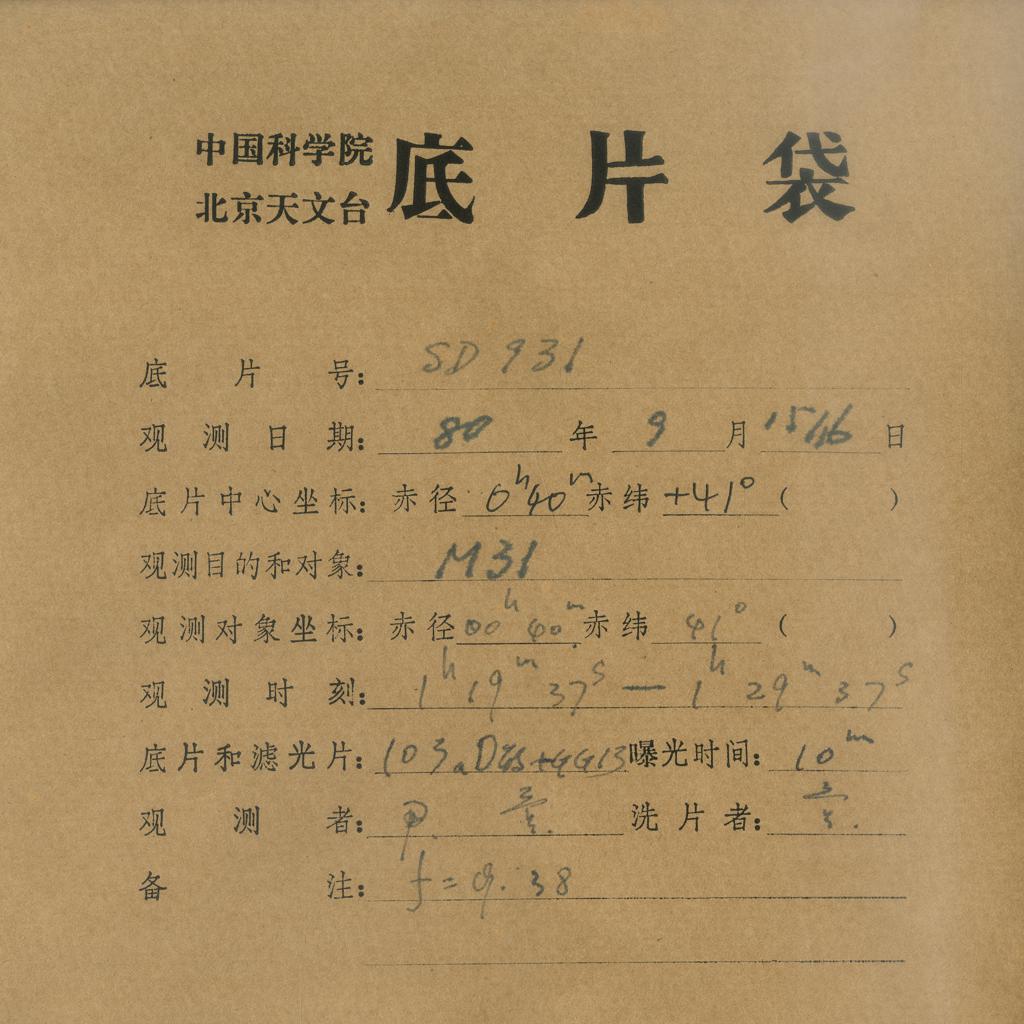 中国科学院
北京天文台
底片袋
底片号: SD 931
观测日期: 80 年 9 月 15/16 日
底片中心坐标: 赤径 0h40m 赤纬 +41° ( )
观测目的和对象: M31
观测对象坐标: 赤径 00h 40m 赤纬 41° ( )
观测时刻: 1h 19m 37s — 1h 29m 37s
底片和滤光片: 103aD +GG13 曝光时间: 10m
观测者: 洗片者:
备注: f = 9.38